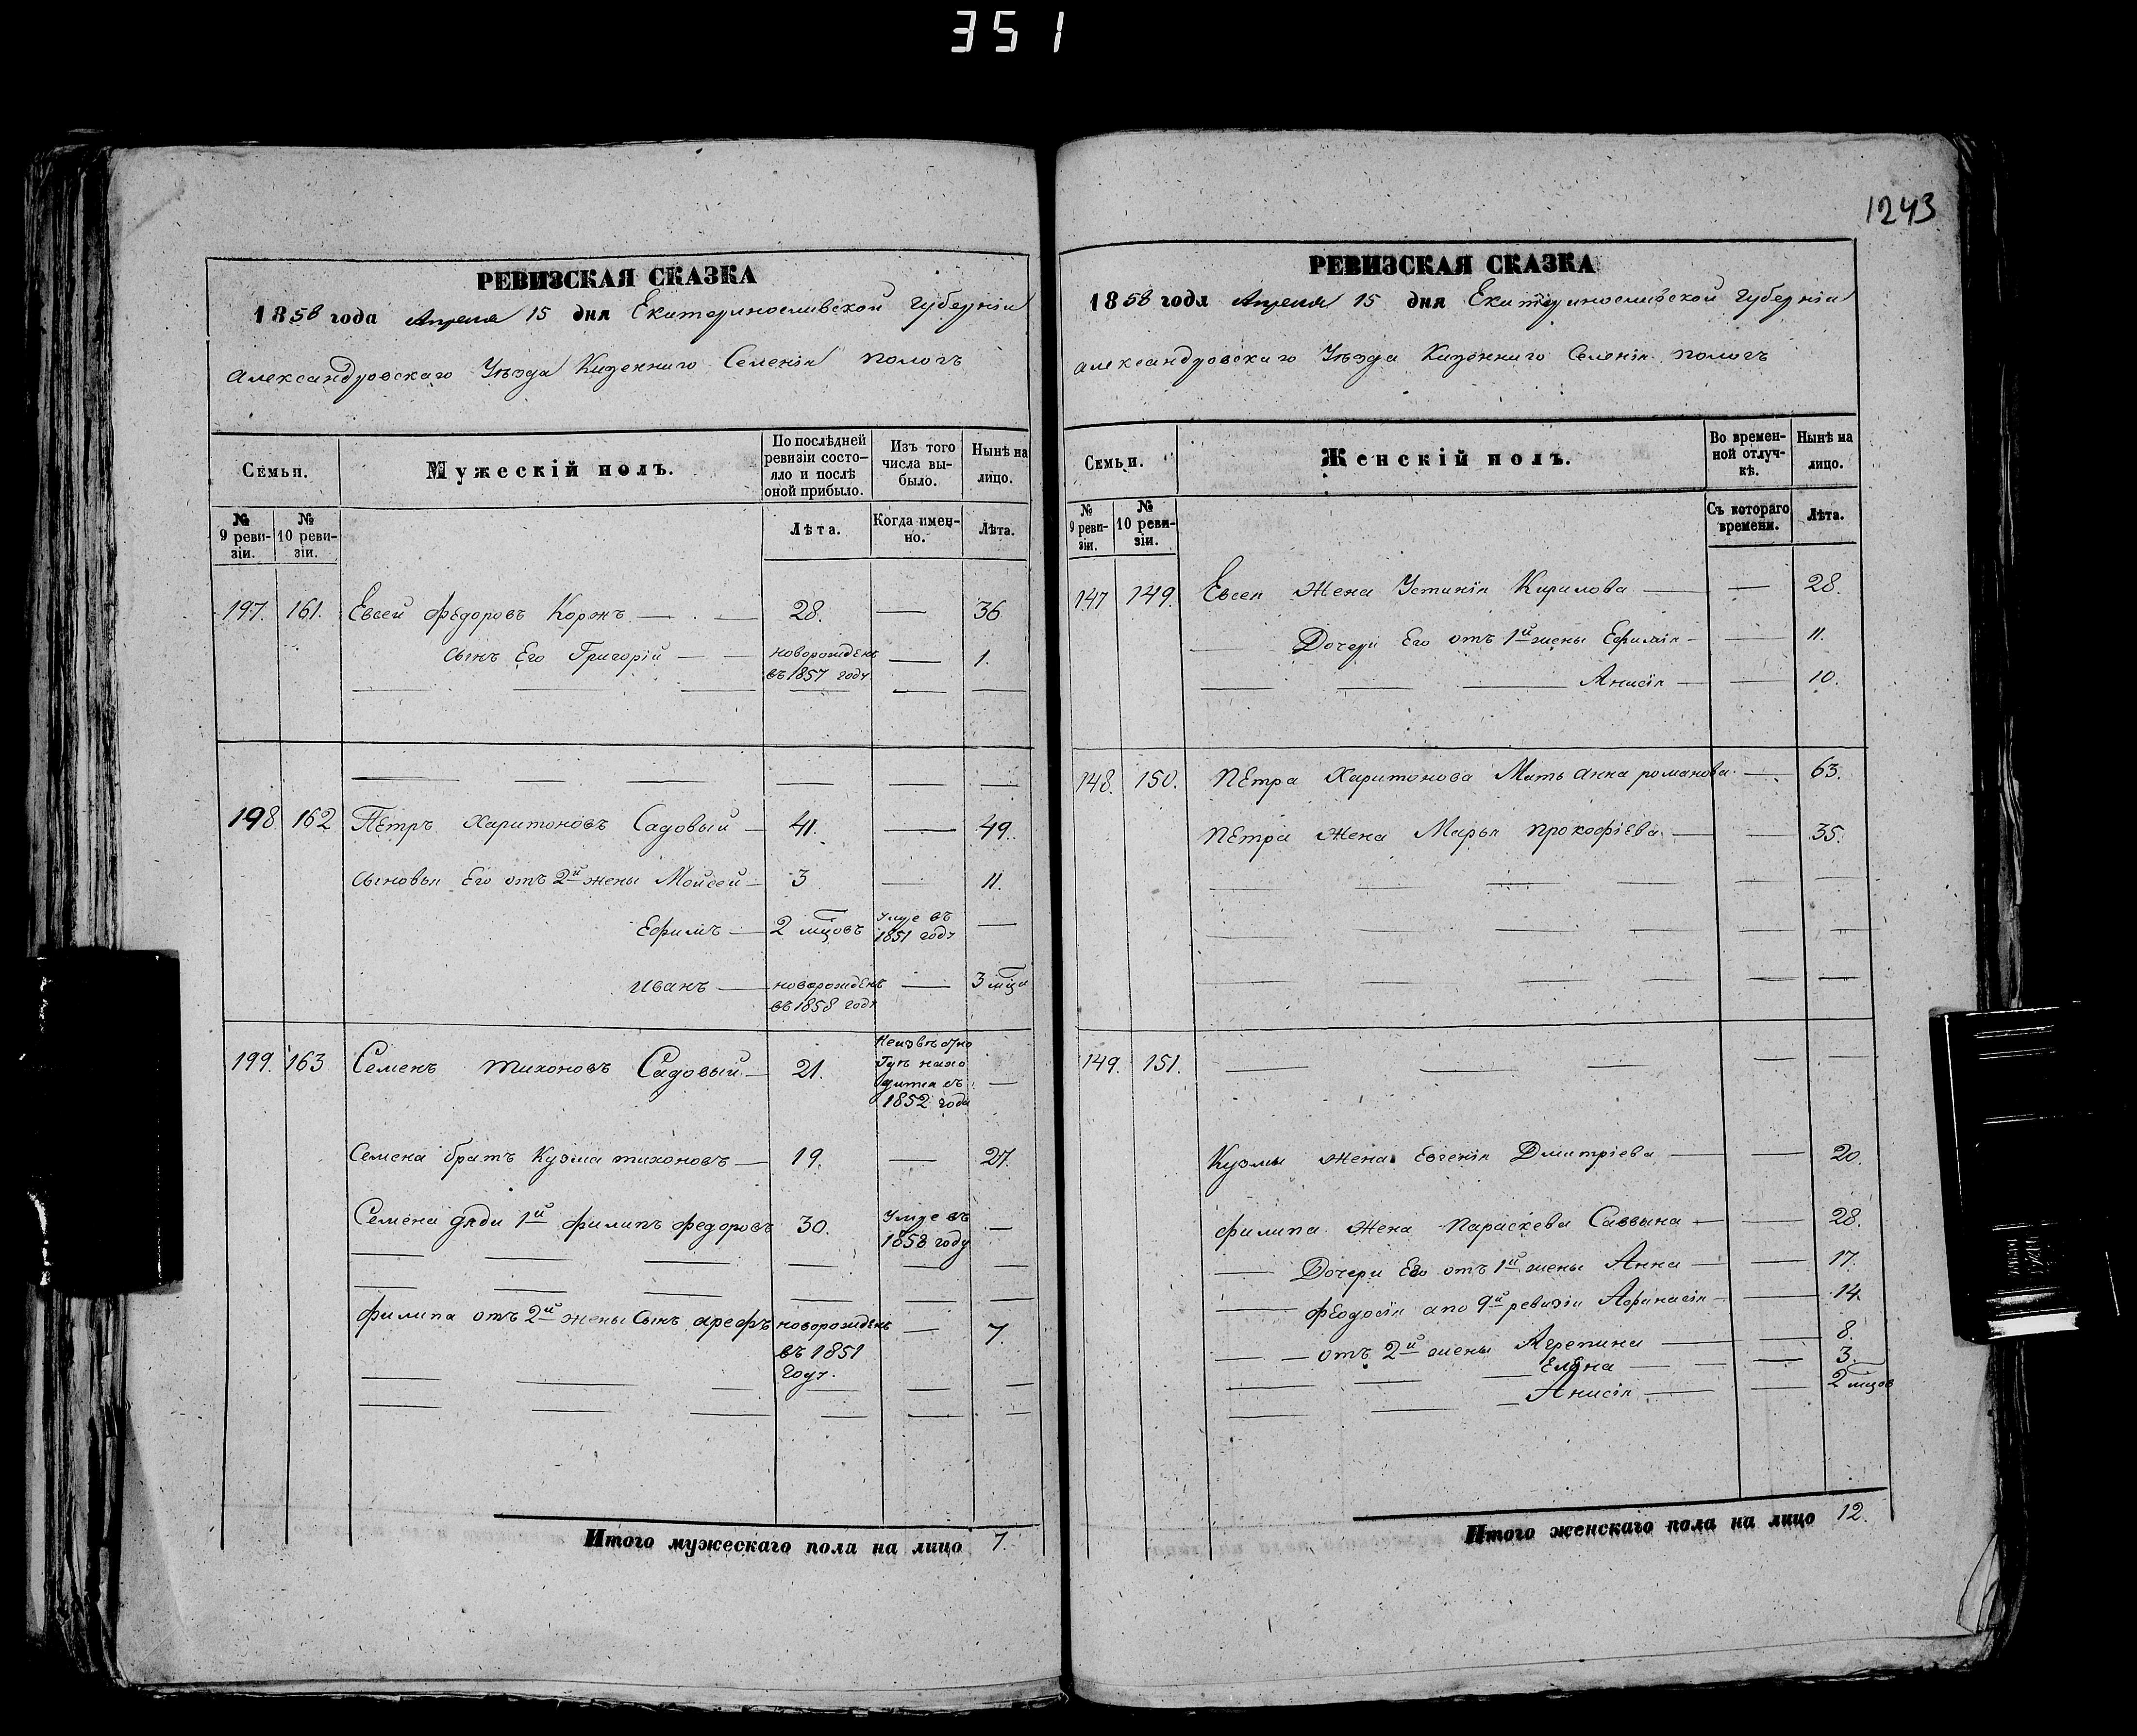 351
1243
РЕВИЗСКАЯ СКАЗКА
1858 года Апреля 15 дня Екатеринославской Губерніи
Александровскаго Уѣзда Казеннаго Селенія пологъ
Семьи.
Мужескій полъ.
По послѣдней ревизіи состояло и послѣ оной прибыло.
Изъ того числа выбыло.
Нынѣ на лицо.
№ 9 ревизіи.
№ 10 ревизіи.
Лѣта.
Когда именно.
Лѣта.
197. 161. Евсей Федоровъ Коржъ — 28. — 36
сынъ Его Григорій — новорожденъ въ 1857 году — 1.
198 162 Петръ Харитоновъ Садовый — 41. — 49.
сыновья Его отъ 2й жены Моисей — 3 — 11.
Ефимъ — 2 мцовъ умре въ 1851 году —
Иванъ — новорожденъ въ 1858 году — 3 мца
199. 163 Семенъ тихоновъ Садовый — 21. Неизвѣстно Гдѣ находится съ 1852 года —
Семена братъ Кузма тихоновъ — 19. — 27.
Семена дяди 1й филипъ федоровъ 30. Умре въ 1858 году —
филипа отъ 2й жены Сынъ арефъ новорожденъ въ 1851 году. — 7.
Итого мужескаго пола на лицо 7.
РЕВИЗСКАЯ СКАЗКА
1858 года Апреля 15 дня Екатеринославской Губерніи
александровскаго Уѣзда Казеннаго Селенія пологъ
Семьи.
Женскій полъ.
Во временной отлучкѣ.
Нынѣ на лицо.
№ 9 ревизіи.
№ 10 ревизіи.
Съ котораго времени.
Лѣта.
147 149. Евсея Жена Устинія Кирилова — — 28.
Дочери Его отъ 1й жены Ефимія — — 11.
Анисія — — 10.
148. 150. Петра Харитонова Мать анна романова — 63.
Петра жена Марья прокофіева — — 35.
149. 151.
Кузмы жена Евгенія Дмитріева — — 20.
филипа жена параскева Саввина — — 28.
Дочери Его отъ 1й жены Анна — — 17.
феодосія а по 9й ревизіи Афанасія — — 14.
отъ 2й жены Агрепина — — 8.
Елена — — 3.
Анисія — — 2 мцов
Итого женскаго пола на лицо 12.